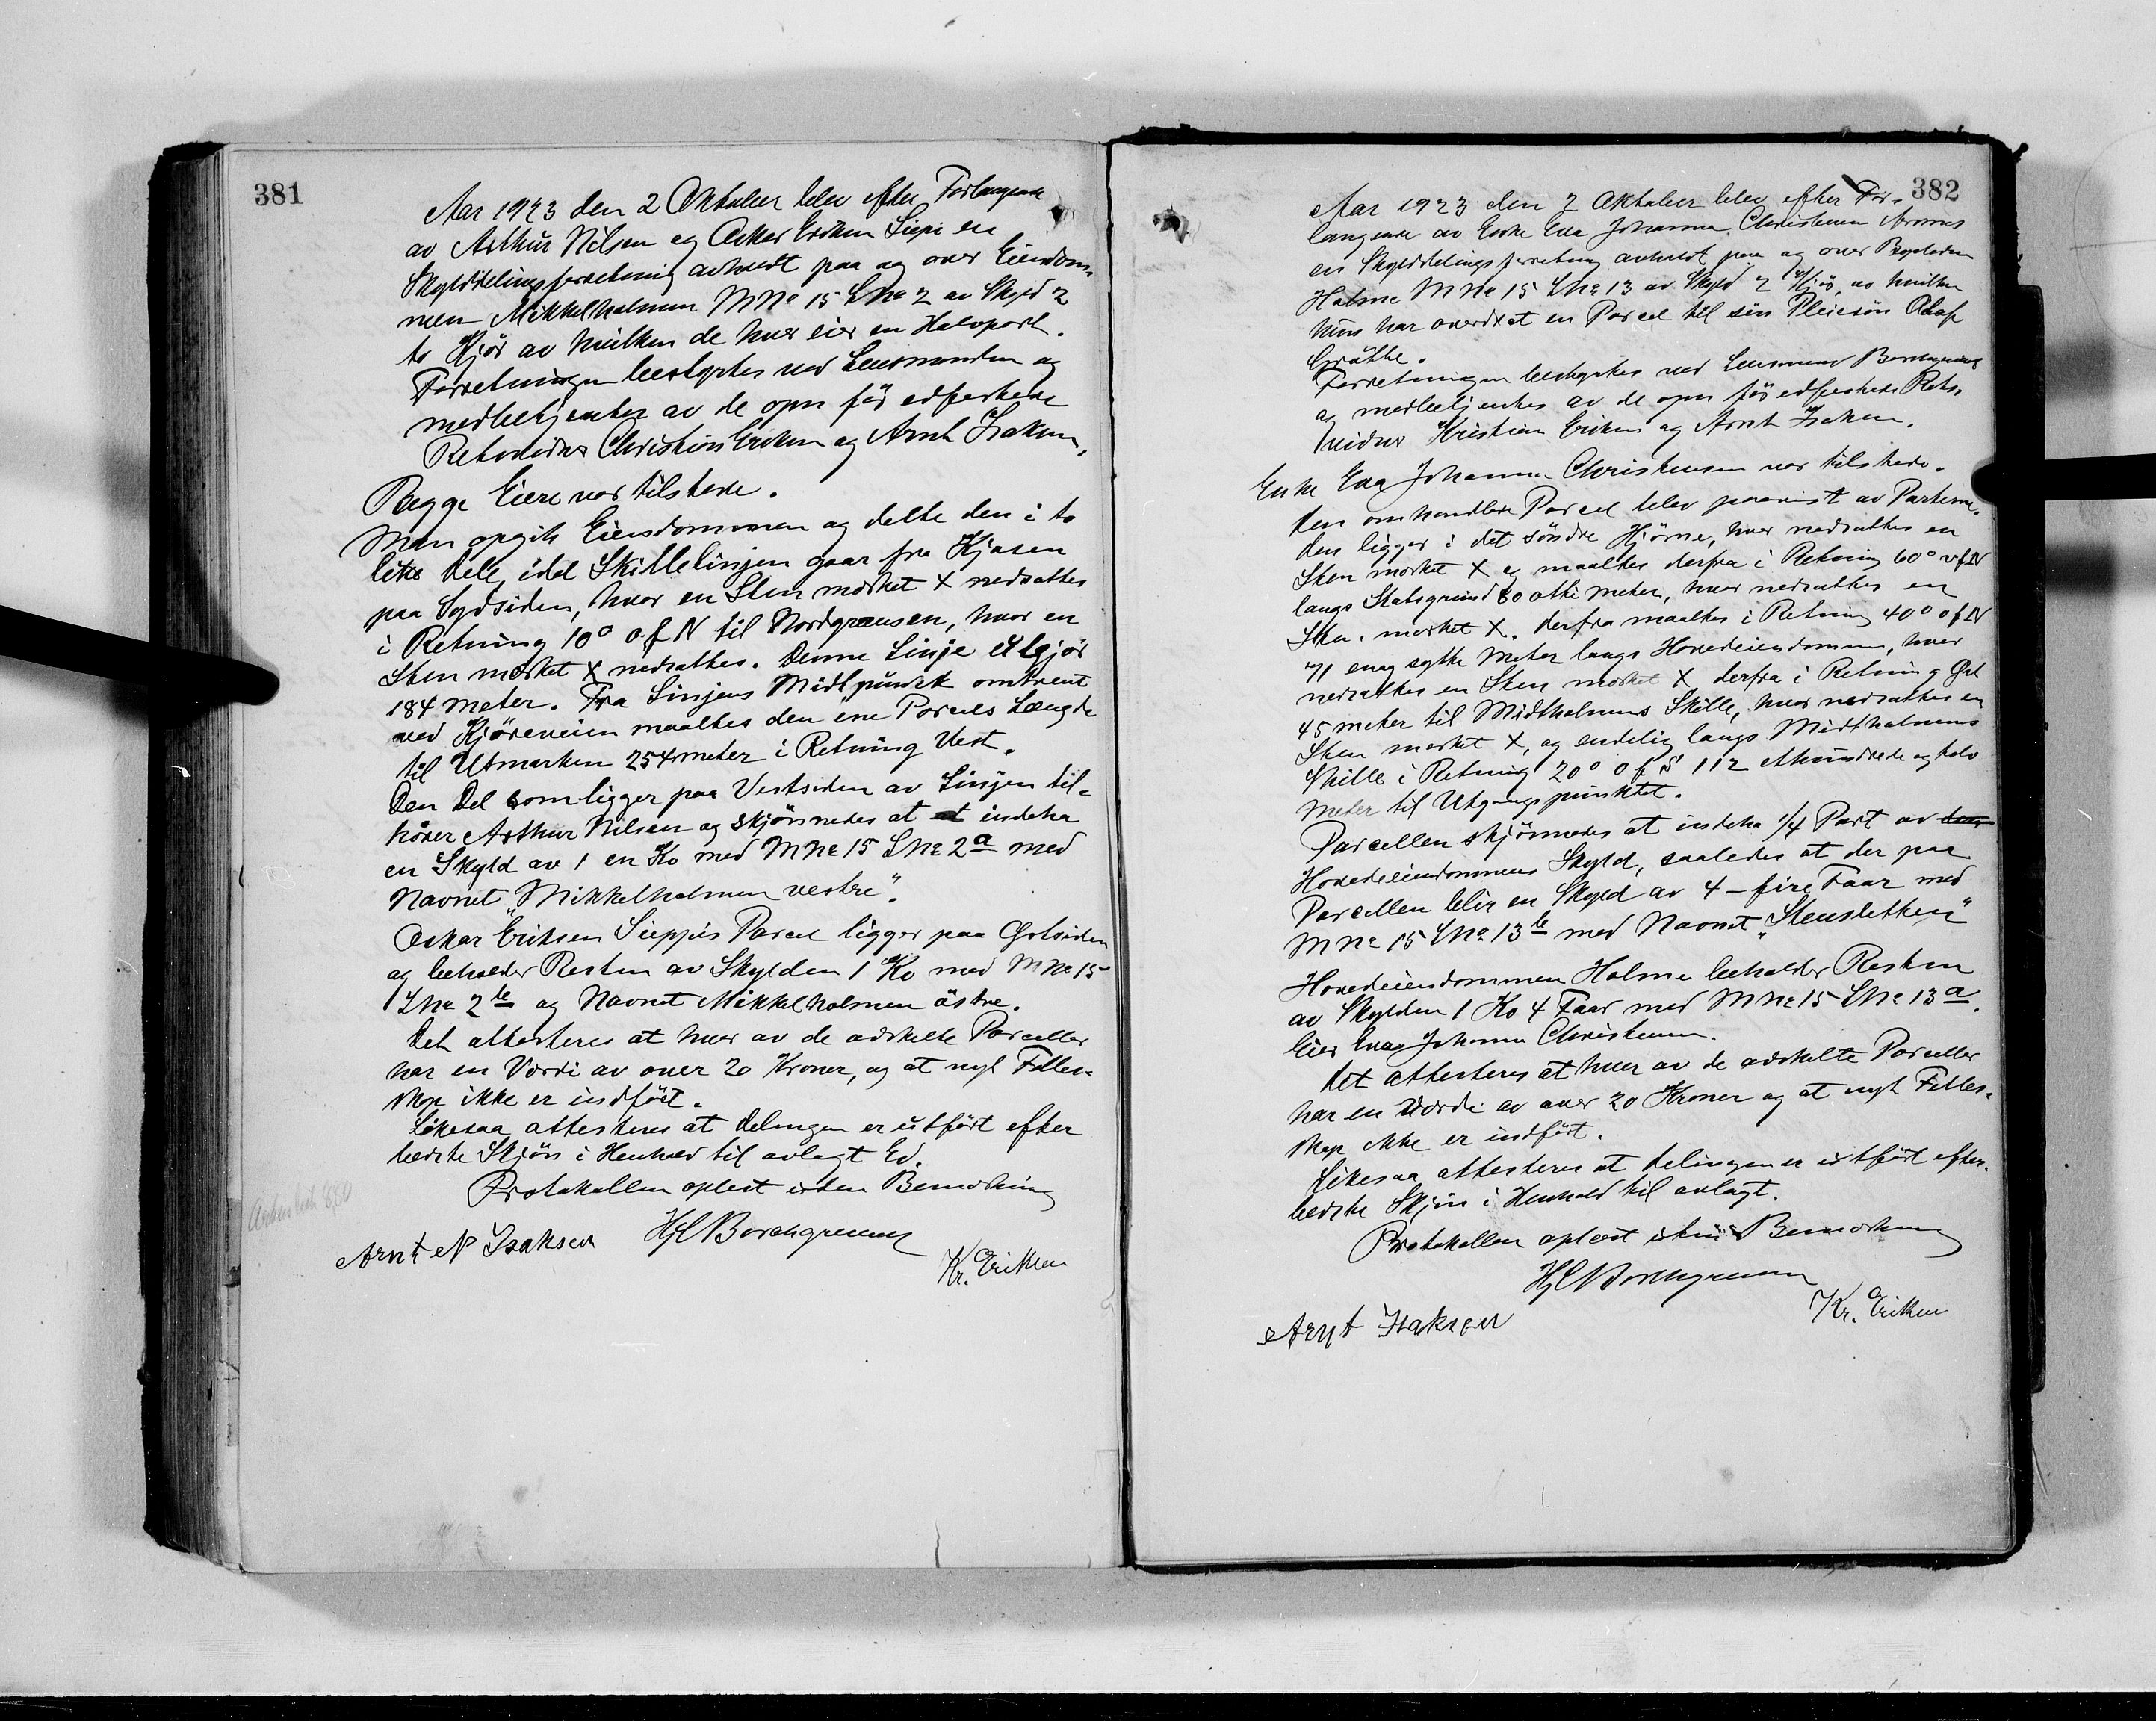 381
Aar 1923 den 2 Oktober blev efter Forlangende
av Arthur Nilsen og Oskar Eriksen Siepi en
Skylddelingsforretning avholdt paa og over Eiendom-
men Mikkelholmen MNo 15 LNo 2 av Skyld 2
to Kjør av hvilken de hver eier en Halvpart.
Forretningen bestyrtes ved Lensmanden og
medbetjentes av de opn før edfestede
Retsvidner Christian Eriksen og Arnt Isaksen.
Begge Eiere var tilstede.
Man opgik Eiendommen og delte den i to
like Dele, idet Skillelinjen gaar fra Kjosen
paa Sydsiden, hvor en Sten mærket X nedsattes
i Retning 10° o f N til Nordgrænsen, hvor en
Sten mærket X nedsattes. Denne Linje utgjør
184 meter. Fra Linjens Midtpunkt omtrent
ved Kjøreveien maaltes den ene Parcels Længde
til Utmarken 254 meter i Retning Vest.
Den Del som ligger paa Vestsiden av Linjen til-
hører Arthur Nilsen og skjønnedes at at indeha
en Skyld av 1 en Ko med MNo 15 LNo 2a med
Navnet "Mikkelholmen vestre".
Oskar Eriksen Sieppis Parcel ligger paa Østsiden
og beholder Resten av Skylden 1 Ko med MNo 15
LNo 2b og Navnet Mikkelholmen östre.
Det attesteres at hver av de adskilte Parceller
har en Værdi av over 20 Kroner, og at nyt Fælles-
skap ikke er indført.
Likesaa attesteres at delingen er utført efter
bedste Skjøn i Henhold til avlagt Ed.
Protokollen oplest uten Bemerkning
HjlBorchgrevink
Arnt N Isaksen
Kr. Eriksen
382
Aar 1923 den 2 Oktober blev efter For-
langende av Enke Eva Johanna Christensen Aronnes
en Skylddelingsforretning avholdt paa og over Bopladsen
Holme MNo 15 LNo 13 av Skyld 2 Kjør, av hvilken
hun har overdrat en Parcel til sin Pleiesøn Oluf
Grøtte.
Forretningen bestyrtes ved Lensmand Borchgrevink
og medbetjentes av de opn før edfestede Rets-
vidner Kristian Eriksen og Arnt Isaksen.
Enke Eva Johanna Christensen var tilstede.
Den omhandlede Parcel blev paavist av Parterne.
Den ligger i det søndre Hjørne, hvor nedsattes en
Sten mærket X og maaltes derfra i Retning 60° v f N
langs Statsgrund 80 otti meter, hvor nedsattes en
Sten mærket X. Derfra maaltes i Retning 40° o f N
71 enog sytti Meter langs Hovedeiendommen, hvor
nedsattes en Sten mærket X derfra i Retning Øst
45 meter til Midtholmens Skille, hvor nedsattes en
Sten mærket X, og endelig langs Midtholmens
Skille i Retning 20° o f S 112 ethundrede og tolv
meter til Utgangspunktet.
Parcellen skjønnedes at indeha 1/4 Part av den
Hovedeiendommens Skyld, saaledes at der paa
Parcellen blir en Skyld av 4 - fire Faar med
MNo 15 LNo 13b med Navnet "Stensletten"
Hovedeiendommen Holme beholder Resten
av Skylden 1 Ko 4 Faar med MNo 15 LNo 13a.
Eier Eva Johanna Christensen.
Det attesteres at hver av de adskilte Parceller
har en Værdi av over 20 Kroner og at nyt Fælles-
skap ikke er indført.
Likesaa attesteres at delingen er utført efter
bedste Skjøn i Henhold til avlagt.
Protokollen oplæst uten Bemerkning
HjlBorchgrevink
Arnt Isaksen
Kr. Eriksen